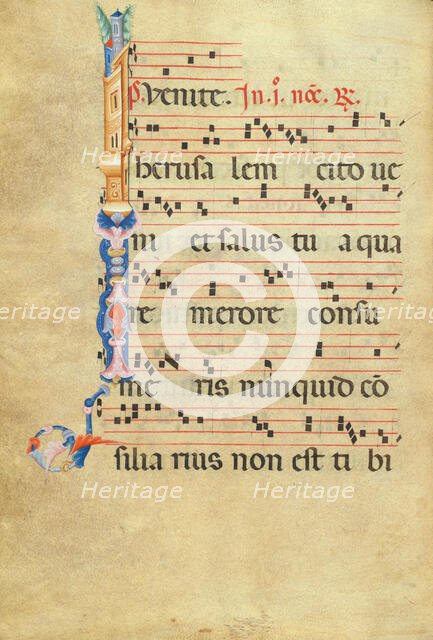 P. Venite. In. i. noc̄. R.
Iherusalem cito ve
ni et salus tu a qua
re merore consu
me ris nunquid cō
silia rius non est ti bi
Heritage Heritage Heritage
Heritage Heritage Heritage
Heritage Heritage Heritage